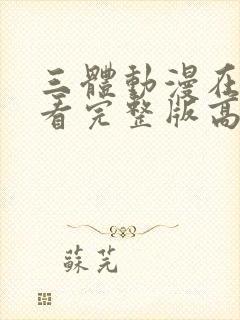 三體動漫在
看完整版高
蘇芫